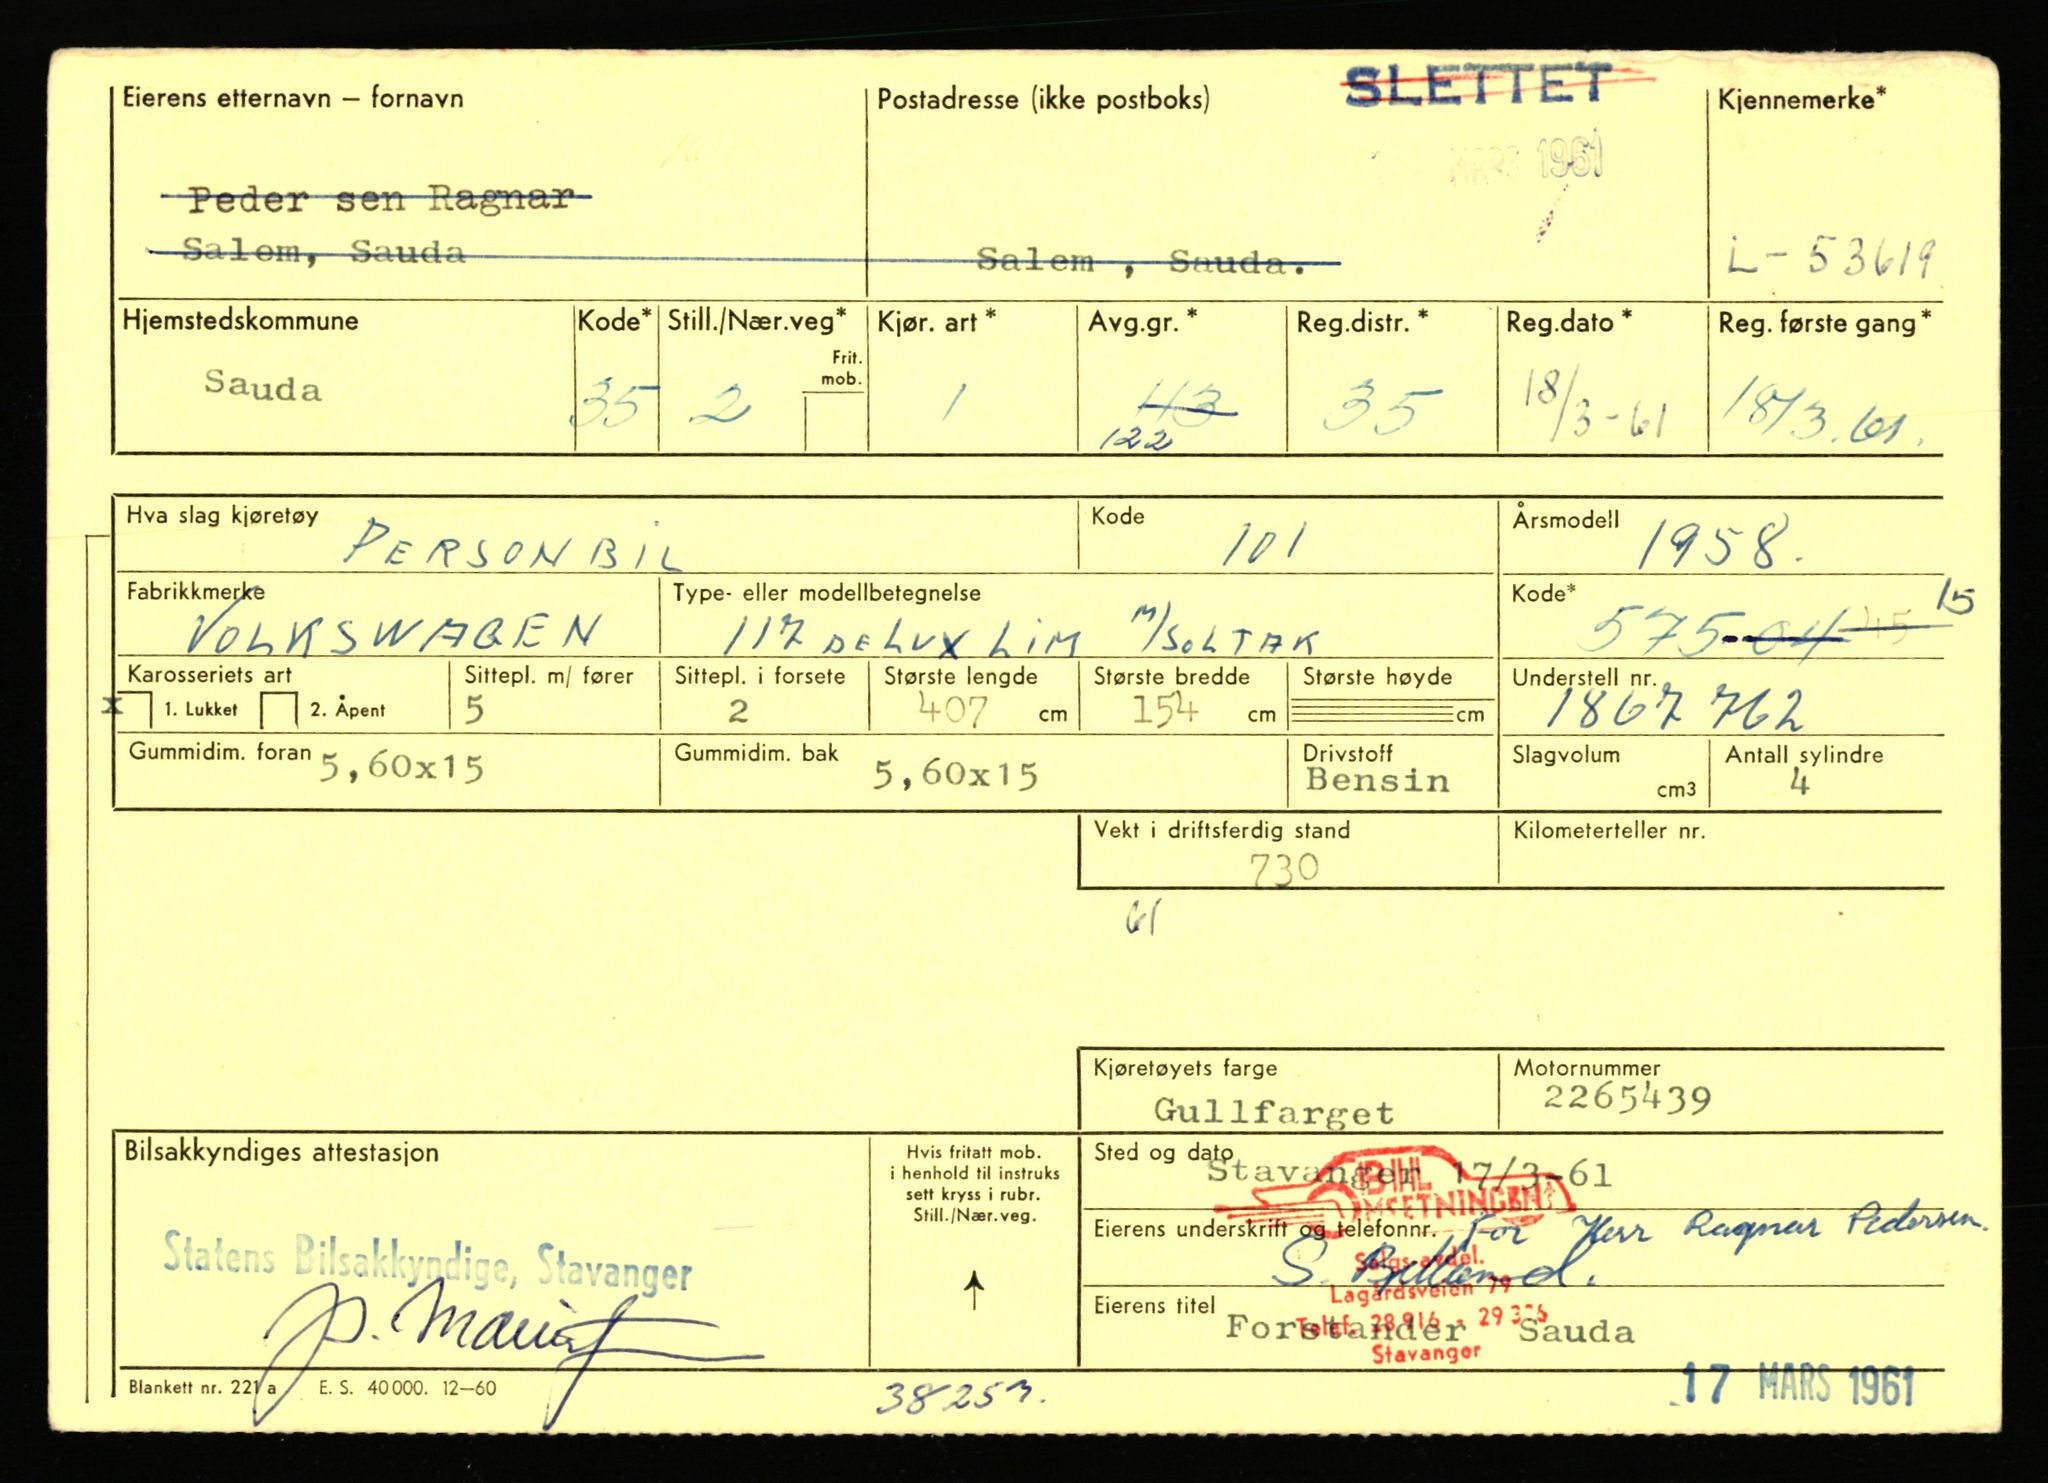 SLETTET
Eierens etternavn – fornavn
Postadresse (ikke postboks)
Kjennemerke*
MARS 1961
Peder sen Ragnar
Salem, Sauda
Salem , Sauda.
L- 53619
Hjemstedskommune
Kode*
Still./Nær.veg*
Kjør. art *
Avg.gr. *
Reg.distr. *
Reg.dato *
Reg. første gang*
Frit.
mob.
Sauda
35
2
1
43
122
35
18/3-61
18/3.61.
Hva slag kjøretøy
PERSONBIL
Kode
101
Årsmodell
1958.
Fabrikkmerke
VOLKSWAGEN
Type- eller modellbetegnelse
117 DELUX LIM M/SOLTAK
Kode*
575-04 45 15
Karosseriets art
x 1. Lukket 2. Åpent
Sittepl. m/ fører
5
Sittepl. i forsete
2
Største lengde
407 cm
Største bredde
154 cm
Største høyde
cm
Understell nr.
1867762
Gummidim. foran 5,60x15
Gummidim. bak 5,60x15
Drivstoff
Bensin
Slagvolum
cm3
Antall sylindre
4
Vekt i driftsferdig stand
730
Kilometerteller nr.
61
Kjøretøyets farge
Gullfarget
Motornummer
2265439
Bilsakkyndiges attestasjon
Hvis fritatt mob.
i henhold til instruks
sett kryss i rubr.
Still./Nær.veg.
Statens Bilsakkyndige, Stavanger
Sted og dato
Stavanger 17/3-61
BIL
OMSETNINGEN
Eierens underskrift og telefonnr.
For Herr Ragnar Pedersen.
Salgs-avdel.
Lagårdsveien 79
Eierens titel
Telef. 28916 - 29376
Forstander Sauda
Stavanger
Blankett nr. 221 a E. S. 40000. 12–60
38253.
17 MARS 1961